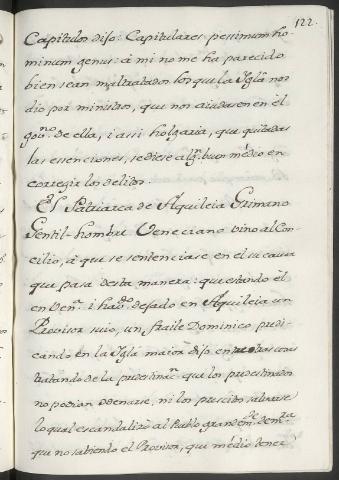 122.
Capitulos dijo: Capitulares pessimum ho-
minum genus: à mi no me ha parecido
bien sean maltratados los que la Iglâ nos
dio por ministros, que nos aiudasen en êl
govno. de ella, i assi holgaria, que quitadas
las essenciones, se diese algn. buen médio en
corregir los delitos.
El Patriarca de Aquileia Grimano
Gentil-hombre Veneciano vino al Con-
cilio, à que se sentenciase en él su causa
que pasa desta manera: que estando êl
en Ven.ª i havdo. dejado en Aquileia un
Provisor suio, un fraile Dominico predi-
cando en la Iglâ maior dijo entre otras cosas
tratando de la predestinacn. que los predestinados
no podian condenarse, ni los prescitos salvarse
lo qual escandalizò al Pueblo grandemte. de manra.
que no sabiendo el Provisor, que médio tener